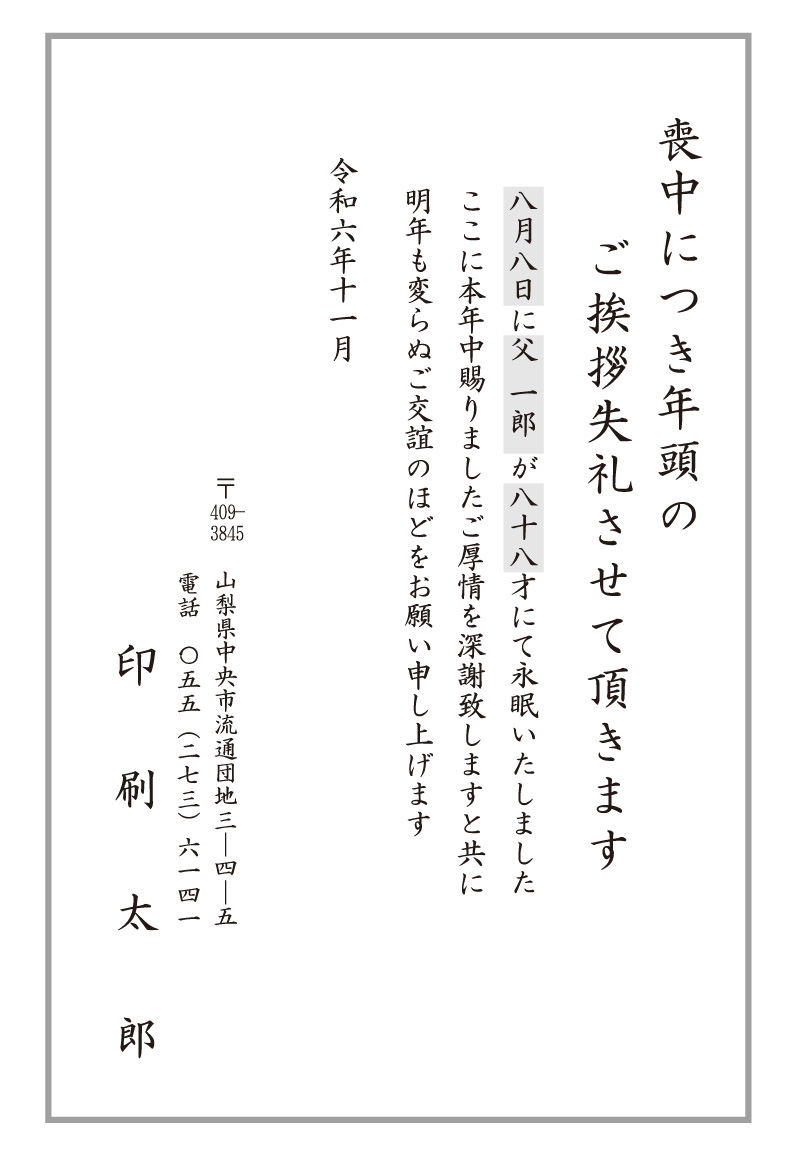 喪中につき年頭の
ご挨拶失礼させて頂きます
八月八日に父 一郎 が八十八才にて永眠いたしました
ここに本年中賜りましたご厚情を深謝致しますと共に
明年も変らぬご交誼のほどをお願い申し上げます
令和六年十一月
〒409-3845 山梨県中央市流通団地三―四―五
電話 〇五五(二七三)六一四一
印刷太郎